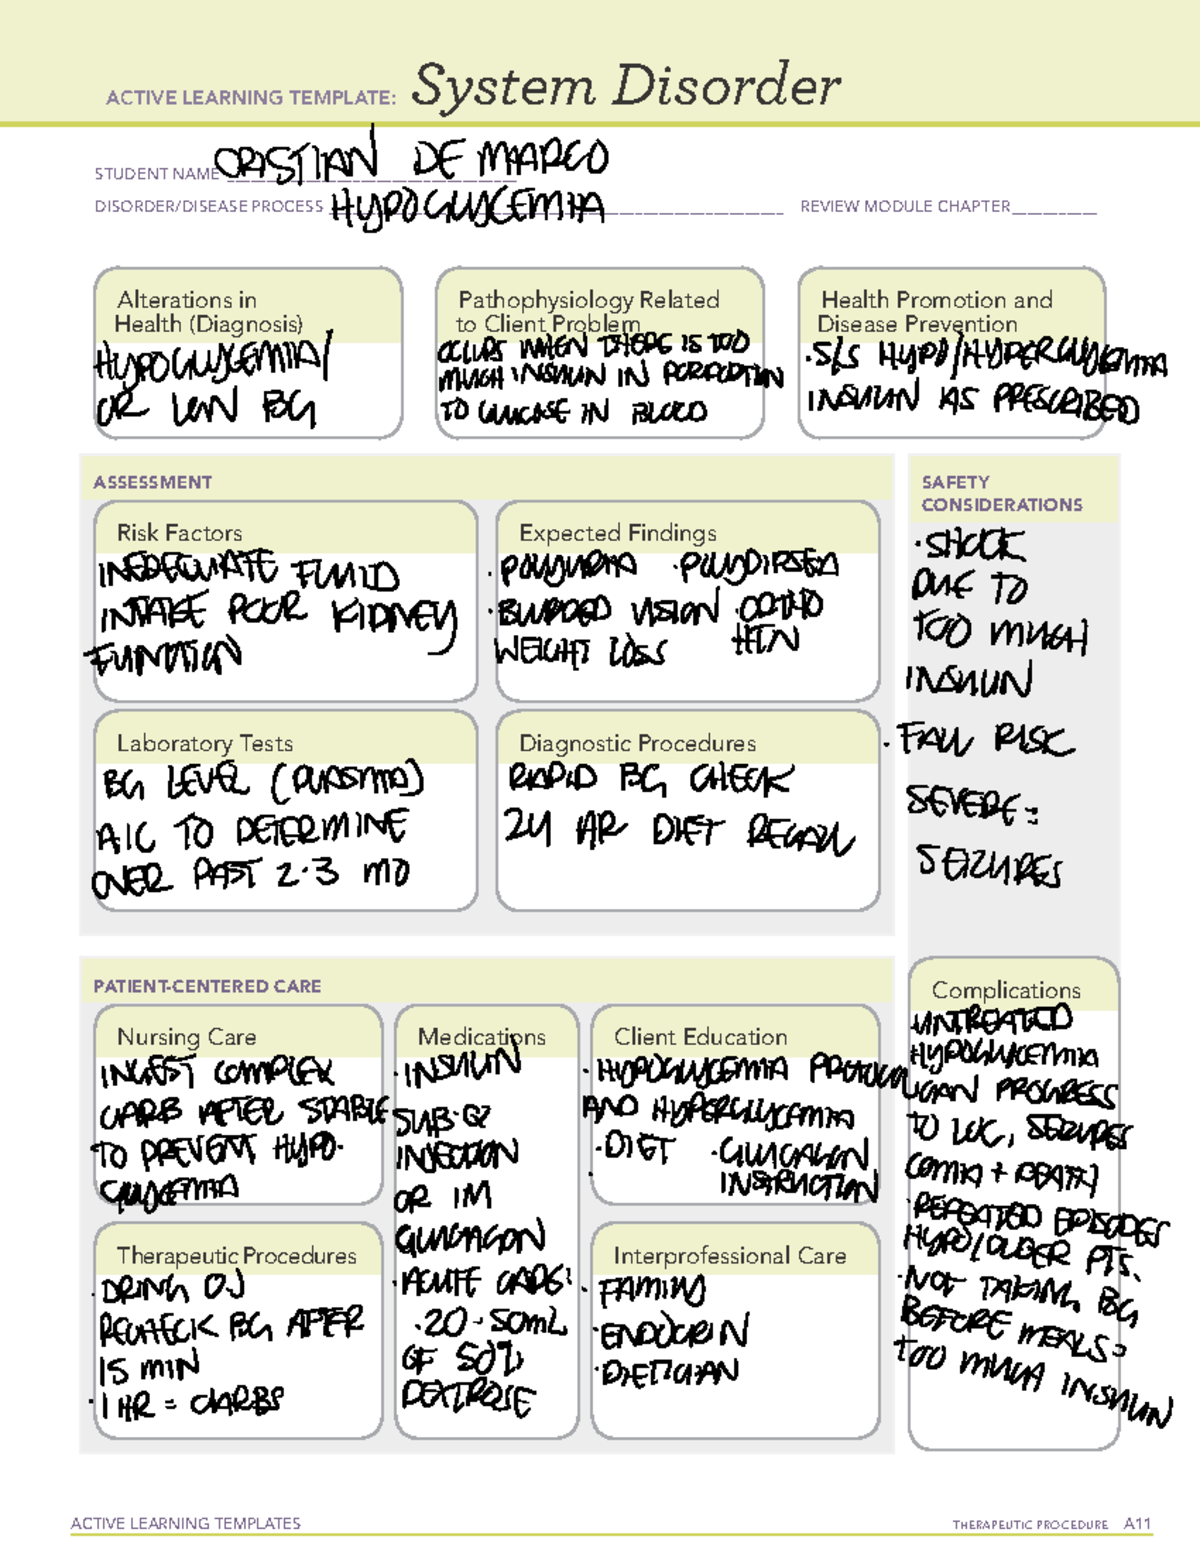 ACTIVE LEARNING TEMPLATE: System Disorder
STUDENT NAME CRISTIAN DE MARCO
DISORDER/DISEASE PROCESS HYPOGLYCEMIA REVIEW MODULE CHAPTER
Alterations in
Health (Diagnosis)
HYPOGLYCEMIA/
OR LOW BG
Pathophysiology Related
to Client Problem
OCCURS WHEN THERE IS TOO
MUCH INSULIN IN PORPORTION
TO GLUCOSE IN BLOOD
Health Promotion and
Disease Prevention
·S/S HYPO/HYPERGLYCEMIA
INSULIN AS PRESCRIBED
ASSESSMENT
Risk Factors
INEDEQUATE FLUID
INTAKE POOR KIDNEY
FUNCTION
Expected Findings
·POLYURIA ·POLYDIPSEA
·BLURRED VISION ·ORTHO
WEIGHT LOSS HTN
Laboratory Tests
BG LEVEL (PLASMA)
A1C TO DETERMINE
OVER PAST 2-3 MO
Diagnostic Procedures
RAPID BG CHECK
24 HR DIET RECALL
SAFETY
CONSIDERATIONS
·SHOCK
DUE TO
TOO MUCH
INSULIN
·FALL RISK
SEVERE:
SEIZURES
PATIENT-CENTERED CARE
Nursing Care
INGEST COMPLEX
CARB AFTER STABLE
TO PREVENT HYPO-
GLYCEMIA
Medications
·INSULIN
SUB-Q
INJECTION
OR IM
GLUCAGON
·ACUTE CARE:
·20-50mL
OF 50%
DEXTROSE
Client Education
·HYPOGLYCEMIA PROTOCOL
AND HYPERGLYCEMIA
·DIET ·GLUCAGON
INSTRUCTION
Therapeutic Procedures
·DRINK OJ
RECHECK BG AFTER
15 MIN
·1 HR = CARBS
Interprofessional Care
·FAMILY
·ENDOCRIN
·DIETICIAN
Complications
·UNTREATED
HYPOGLYCEMIA
CAN PROGRESS
TO LOC, SEIZURES
COMA + DEATH
·REPEATED EPISODES
HYPO/OLDER PTS.
·NOT TAKING BG
BEFORE MEALS=
TOO MUCH INSULIN
ACTIVE LEARNING TEMPLATES
THERAPEUTIC PROCEDURE A11